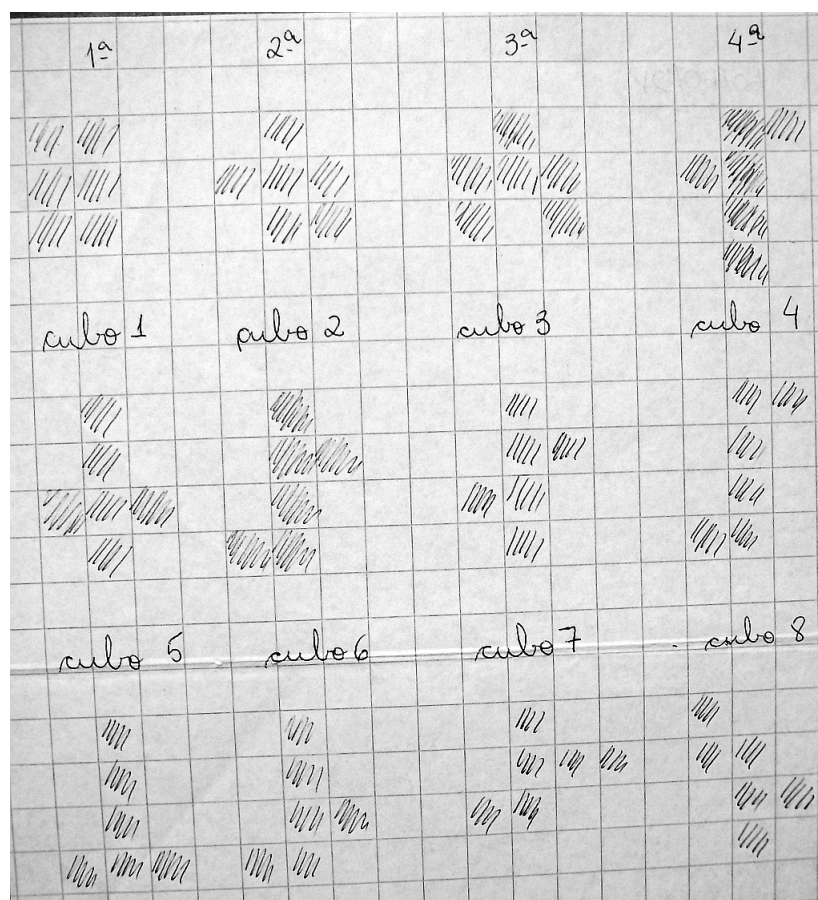 1ª 2ª 3ª 4ª
cubo 1 cubo 2 cubo 3 cubo 4
cubo 5 cubo 6 cubo 7 cubo 8